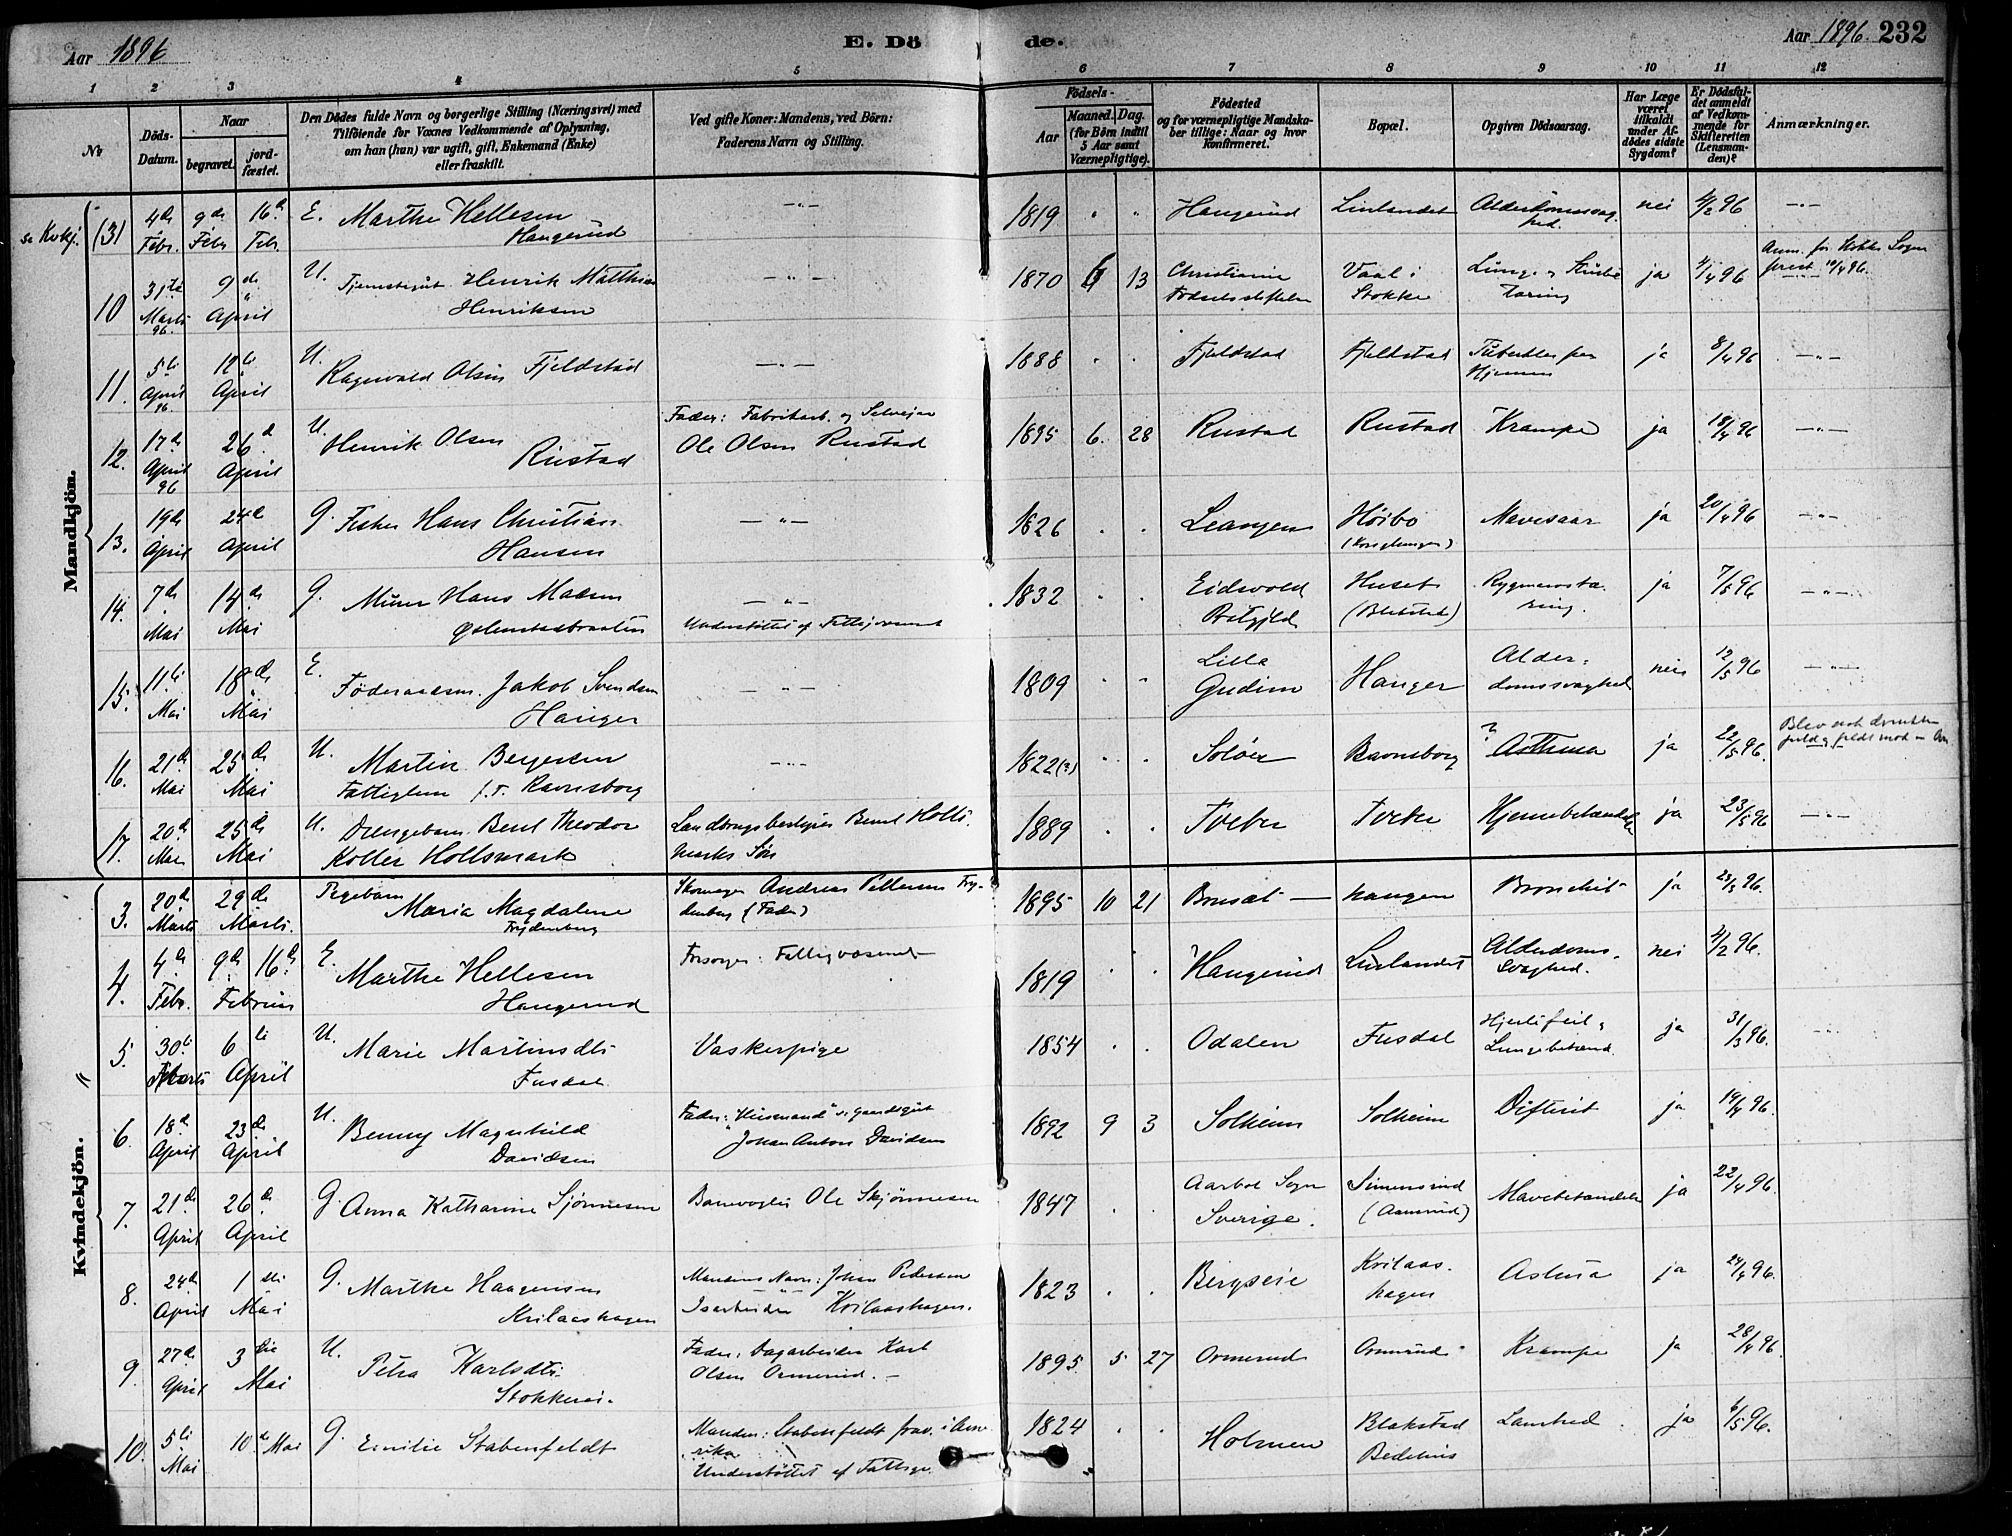 Aar 1896
E. Dö
de.
Aar 1896. 232
1 2 3 4 5 6 7 8 9 10 11 12
No
Döds-
Datum.
Naar
begravet.
jord-
fæstet.
Den Dödes fulde Navn og borgerlige Stilling (Næringsvei) med
Tilföiende for Voxnes Vedkommende af Oplysning,
om han (hun) var ugift, gift, Enkemand (Enke)
eller fraskilt.
Ved gifte Koner: Mandens, ved Börn:
Faderens Navn og Stilling.
Födsels-
Aar
Maaned. Dag.
(for Börn indtil
5 Aar samt
Værnepligtige).
Födested
og for værnepligtige Mandska-
ber tillige: Naar og hvor
konfirmeret.
Bopæl.
Opgiven Dödsaarsag.
Har Læge
været
tilkaldt
under Af-
dödes sidste
Sygdom?
Er Dödsfal-
det anmeldt
af Vedkom-
mende for
Skifteretten
(Lensman-
den)?
Anmærkninger.
Mandkjön.
se Kvkj. (3) 4de Febr. 9de Febr 16de Feb. E. Marthe Hellesen Haugerud — " — 1819 Haugerud Linlandet Alderdomssvag-hed. nei 4/2 96 — " —
10 31te Marts 96. 9de April U. Tjenestegut Henrik Matthias Henriksen — " — 1870 6 13 Christiania Fødselsstiftelse Vaal i Stokke Lunge- og Strube-tæring ja 1/4 96 Anm. for Stokke Sogneprest 11/4 96.
11. 5te April 96. 12te April U. Ragnvald Olsen Fjeldstad — " — 1888 Fjeldstad Fjeldstad Tuberkler paa Hjernen ja 8/4 96 — " —
12. 17de April 96 26de April U. Henrik Olsen Rustad Fader: Fabrikarb. og Selveier Ole Olsen Rustad 1895 6. 28 Rustad Rustad Krampe ja 18/4 96 — " —
13. 19de April 24de April G. Fisker Hans Christian Hansen — " — 1826 Leangen Høibo Mavesaar ja 20/4 96 — " —
14. 7de Mai 14de Mai G. Murer Hans Madsen — " — Understøttet af Fattigvæsenet 1832 Eidsvold Præstgjeld Huset Rygmarvstæ-ring. ja 7/5 96 — " —
15. 11te Mai 18de Mai E. Føderaadsm. Jakob Svendsen Hanger — " — 1809 Lilla Gudim Hanger Alder-domssvaghed nei 12/5 96 — " —
16. 21de Mai 25de Mai U. Martin Bergersen Fattiglem f. T. Ravnsborg — " — 1822 (?) Soløer Ravnsborg ? Asthma ja 22/5 96.
17. 20de Mai 25de Mai U. Drengebarn Bent Theodor Koller Holtsmark Landbrugsbestyrer Bernt Holts-marks Søn 1889 Tveter Tveter Hjernebetændelse ja 23/5 96 — " —
Kvindekjön.
3. 20de Marts 29de Marts. Pigebarn Maria Magdalene Frydenberg Skomager Andreas Pettersen Fry-denberg (Fader) 1895 10 21 Brusæt — haugen Bronchit ja 23/3 96.
4. 4de Febr. 9de 16de Februar E. Marthe Hellesen Haugerud Forsørger: Fattigvæsenet 1819 Haugerud Linlandet Alderdoms-Svaghed. nei 4/2 96.
5. 30te Marts 6te April U. Marie Martinsdtr Fusdal Vaskerpige 1854 Odalen Fusdal Hjertefeil og Lungebetænd. ja 31/3 96.
6. 18de April 23de April U. Benny Magnhild Davidsen Fader: Husmand og gaardsgut Johan Anton Davidsen 1892 9 3 Solheim Solheim Difterit ja 19/4 96.
7. 21de April 26de April G. Anna Katharine Sjønnesen Banevogter Ole Skjønnesen 1847 Aarbol Sogn Sverige. Simensrud (Aamrud) Mavebetændelse ja 22/4 96.
8. 24de April 1ste Mai G. Marthe Haagensen Kvilaashagen Mandens Navn: Johan Pedersen Isarbeider Kvilaashagen. 1823 Bergseie Kvilaas-hagen Astma ja 24/4 96.
9. 27de April 3die Mai U. Petra Karlsdtr. Stokkerei. Fader: Dagarbeider Karl Olsen Ormerud. 1895 5 27 Ormerud Ormerud Krampe ja 28/4 96.
10. 5te Mai 10de Mai G. Emilie Stabenfeldt Manden: Stabenfeldt frav. i Ame-rika Understøttet af Fattigv. 1824 Holmen Blakstad Lamhed ja 6/5 96.